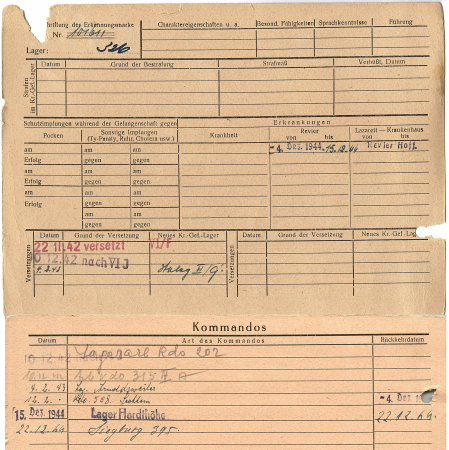 Beschriftung der Erkennungsmarke
Nr.
Lager:
Charaktereigenschaften u. a.
Besond. Fähigkeiten
Sprachkenntnisse
Führung
Strafen im Kr.-Gef.-Lager
Datum
Grund der Bestrafung
Strafmaß
Verbüßt, Datum
Schutzimpfungen während der Gefangenschaft gegen
Erkrankungen
Pocken
Sonstige Impfungen
(Ty-Paraty, Ruhr, Cholera usw.)
Krankheit
Revier
von bis
Lazarett — Krankenhaus
von bis
-4. Dez. 1944 15.12.44 Revier Hoff.
am am am
Erfolg gegen gegen
am am am
Erfolg gegen gegen
am am am
Erfolg gegen gegen
am am
gegen gegen
Versetzungen
Datum
Grund der Versetzung
Neues Kr.-Gef.-Lager
Versetzungen
Datum
Grund der Versetzung
Neues Kr.-Gef.-Lager
22 11.42 versetzt VI/F
0 12.42 nach VI J
Stalag VI/G
Kommandos
Datum
Art des Kommandos
Rückkehrdatum
Kdo 202
4. 2. 43 Arnoldsweiler
12. 2. -
-4. Dez.
15. Dez. 1944 Lager Hardthöhe 22.12.44
22.12.44 Siegburg 395.